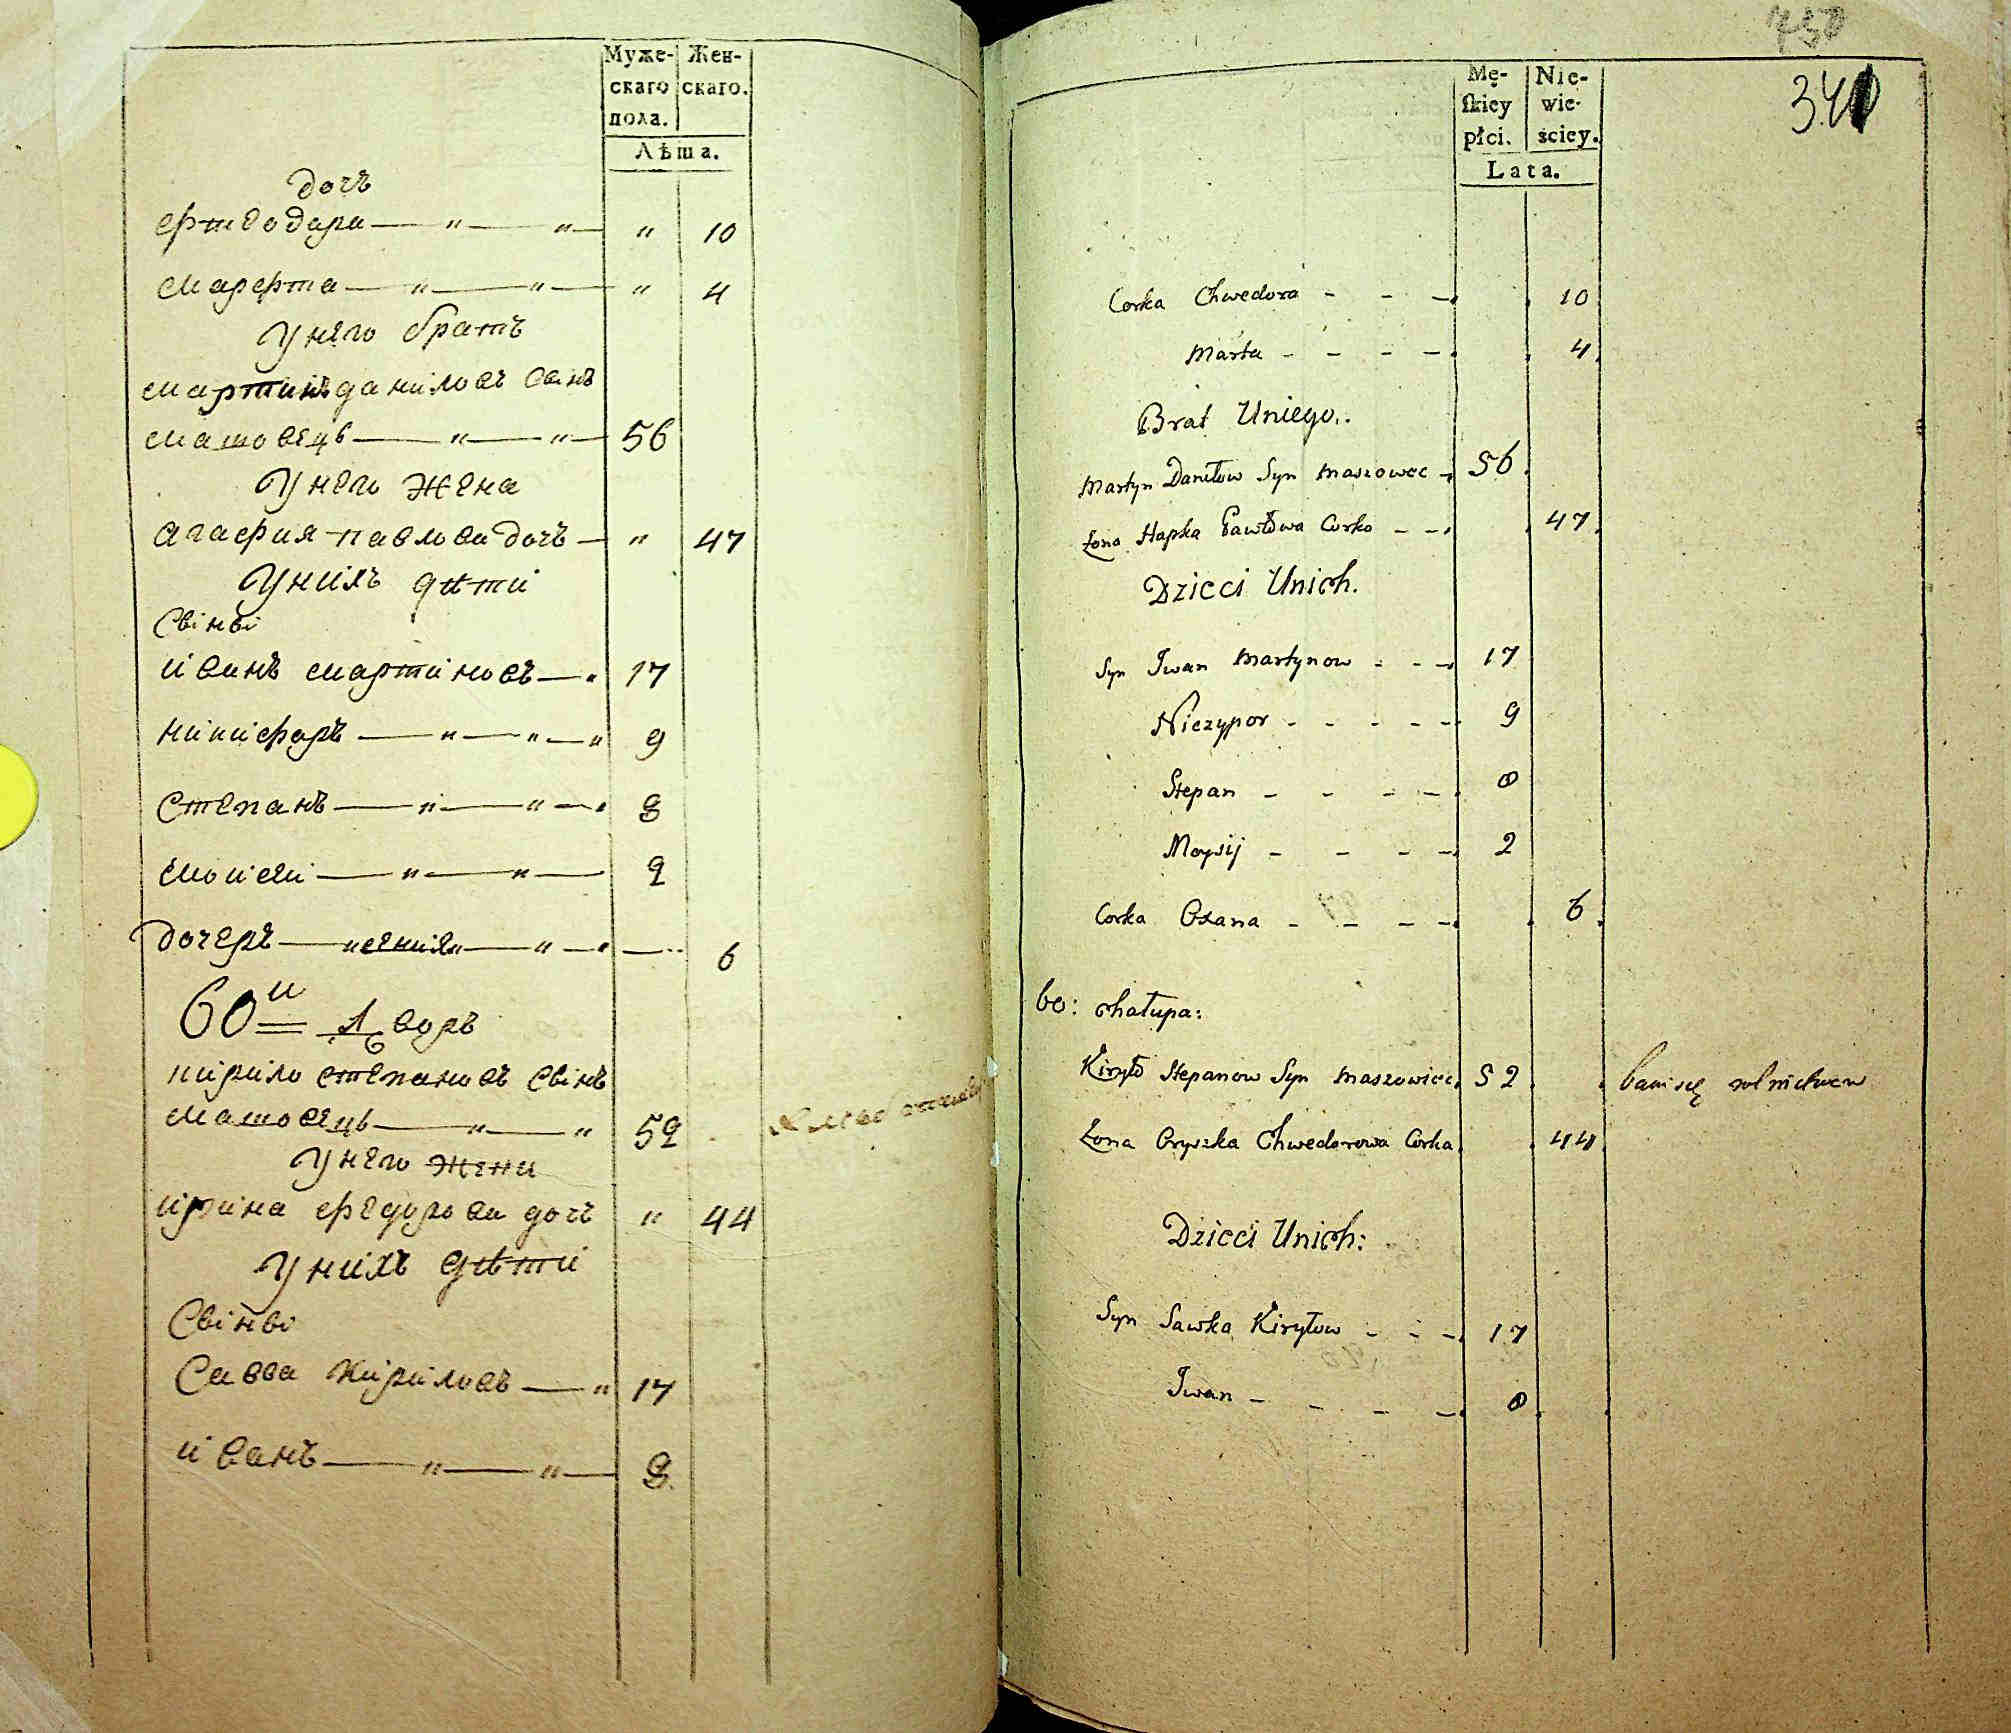 Муже-
скаго
пола.
Жен-
скаго.
Лѣта.
дочъ
Фтеодора — " — " — " 10
Марфта — " — " — " 4
У него братъ
Мартинъ даниловъ синъ
Машовецъ — " — " — 56
У него жена
Агафия павлова дочъ — " 47
У нихъ дѣти
Синві
иванъ мартиновъ — " 17
никифоръ — " — " — " 9
Степанъ — " — " — " 8
Моисеи — " — " — 2
дочеръ — " — " — 6
60и Дворъ
кирило степановъ синъ
Машовецъ — " — " 52
У него жена
ирина федорова дочъ " 44
У нихъ дѣти
Синві
Савва Кириловъ — " 17
иванъ — " — " — 8
750
341
Mę-
skiey
płci.
Nie-
wie-
ściey.
Lata.
Corka Chwedora - - - 10
Marta - - - - 4
Brat Uniego.
Martyn Daniłow Syn Maszowec - 56
Żona Hapka Pawłowa Corka - - 47
Dzieci Unich.
Syn Iwan Martynow - - - 17
Niczypor - - - - - 9
Stepan - - - - 8
Moysij - - - - 2
Corka Oxana - - - - 6
60: Chałupa:
Kiryło Stepanow Syn Maszowiec 52 bawi się rolnictwem
Żona Oryszka Chwedorowa Corka 44
Dzieci Unich:
Syn Sawka Kiryłow - - - 17
Iwan - - - - 8